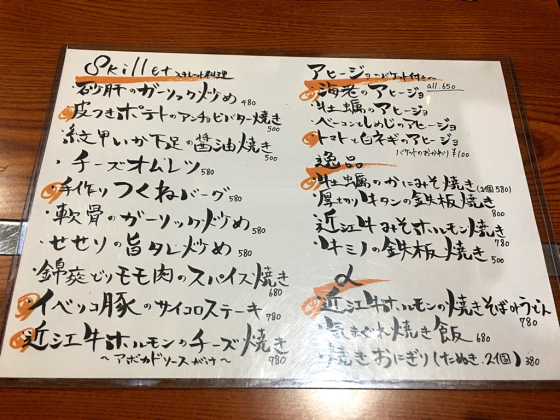 Skillet スキレット料理
砂肝のガーリック炒め 480
皮つきポテトのアンチョビバター焼き 500
紋甲いか下足の醤油焼き 500
・チーズオムレツ 580
手作りつくねバーグ 580
・軟骨のガーリック炒め 580
・せせりの旨タレ炒め 580
・錦爽どりモモ肉のスパイス焼き 680
イベリコ豚のサイコロステーキ 780
近江牛ホルモンのチーズ焼き 780
〜アボカドソースがけ〜
アヒージョ・バケット付き〜
all.650
・海老のアヒージョ
・牡蠣のアヒージョ
・ベーコンとしめじのアヒージョ
トマトと白ネギのアヒージョ
バケットのおかわり ¥100
逸品
牡蠣のかにみそ焼き (2個580)
・厚切り牛タンの鉄板焼き 800
近江牛みそホルモン焼き 780
・牛ミノの鉄板焼き 500
α
近江牛ホルモンの焼きそばorうどん 780
・気まぐれ焼き飯 680
・焼きおにぎり(たぬき、2個) 380